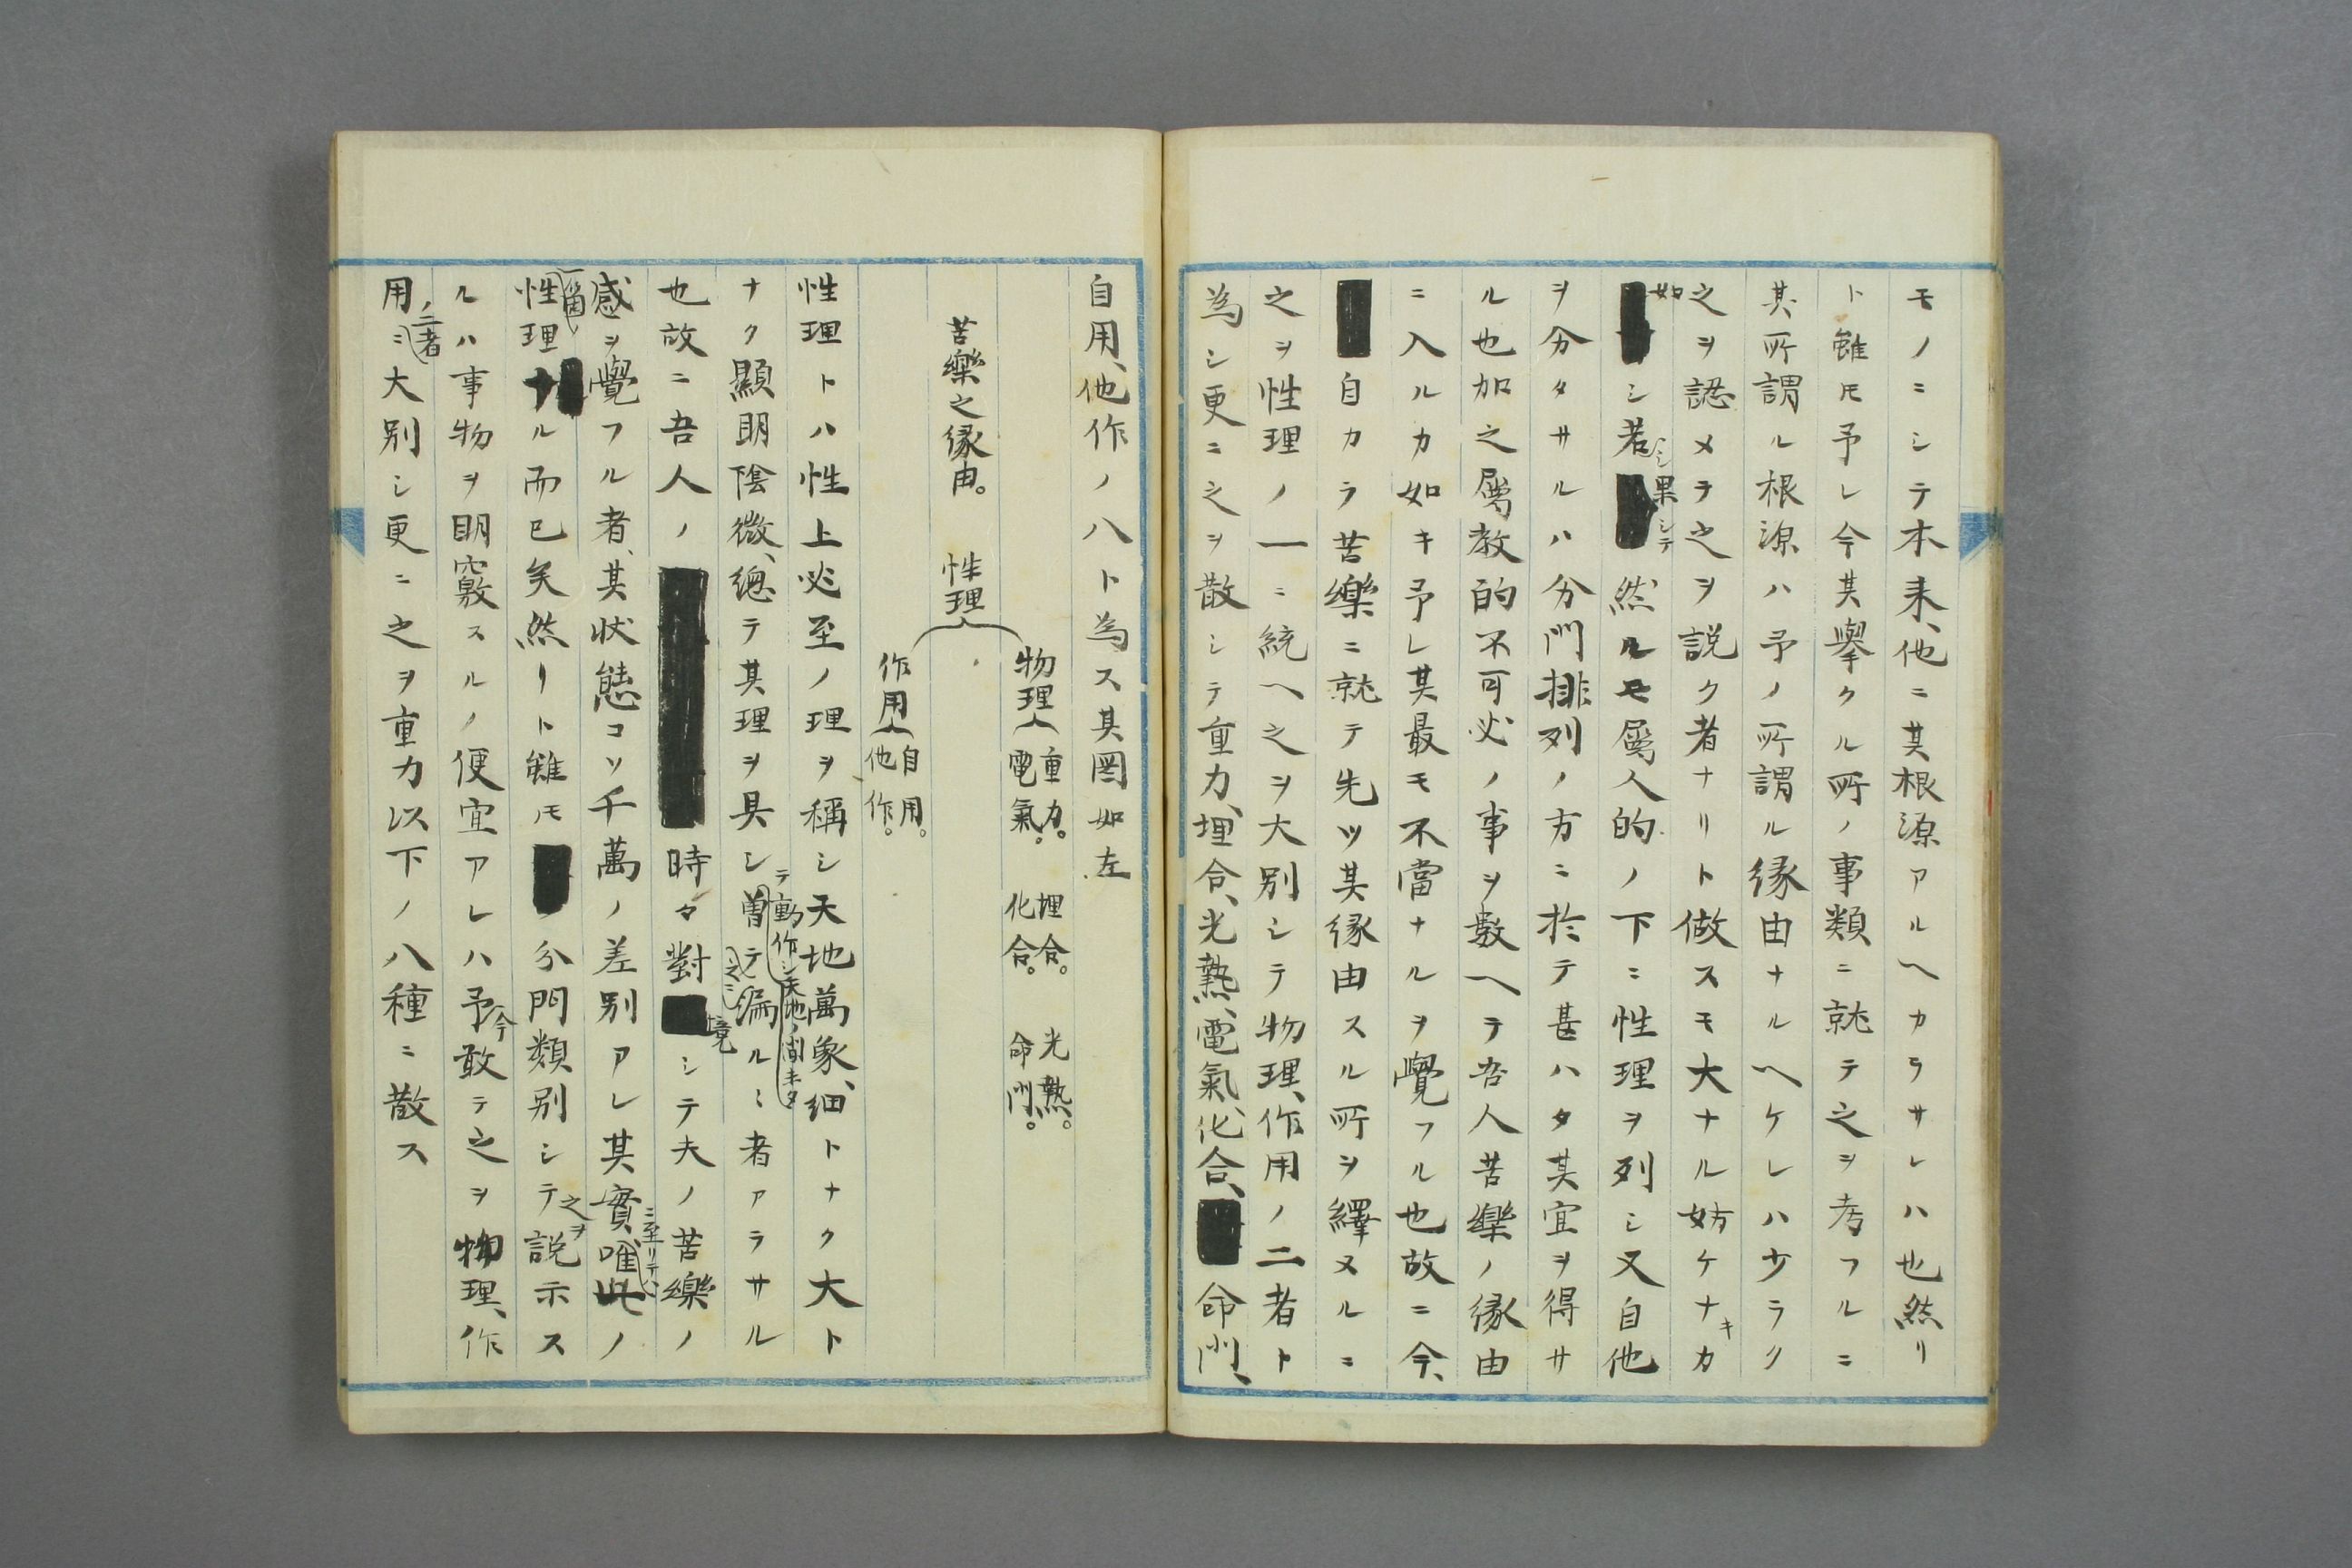 モノニシテ本来、他ニ其根源アルヘカラサレハ也然リ
ト雖モ予レ今其擧クル所ノ事類ニ就テ之ヲ考フルニ
其所謂ル根源ハ予ノ所謂ル縁由ナルヘケレハ少ラク
之ヲ認メテ之ヲ説ク者ナリト做スモ大ナル妨ケナキカ
如シ若シ果シテ然ルモ屬人的ノ下ニ性理ヲ列シ又自他
ヲ分タサルハ分門排列ノ方ニ於テ甚ハタ其宜ヲ得サ
ル也加之屬教的不可必ノ事ヲ數ヘテ吾人苦樂ノ縁由
ニ入ルカ如キ予レ其最モ不當ナルヲ覺フル也故ニ今、
自カラ苦樂ニ就テ先ツ其縁由スル所ヲ繹ヌルニ
之ヲ性理ノ一ニ統ヘ之ヲ大別シテ物理、作用ノ二者ト
為シ更ニ之ヲ散シテ重力、埋合、光熱、電氣、化合、命門、
自用、他作ノ八ト為ス其圖如左
苦樂之縁由。 性理
物理 重力。 埋合。 光熱。
電氣。 化合。 命門。
作用 自用。
他作。
性理トハ性上必至ノ理ヲ稱シ天地萬象、細トナク大ト
ナク顯明陰微、總テ其理ヲ具シテ動作シ天地ノ間キタ曽テ之ニ漏ルヽ者アラサル
也故ニ吾人ノ時々對境シテ夫ノ苦樂ノ
感ヲ覺フル者、其状態コソ千萬ノ差別アレ其實ニ至リテハ唯此ノ
一箇性理ナル而已矣然リト雖モ分門類別シテ之ヲ説示ス
ルハ事物ヲ明竅スルノ便宜アレハ予今敢テ之ヲ物理、作
用ノ二者ニ大別シ更ニ之ヲ重力以下ノ八種ニ散ス